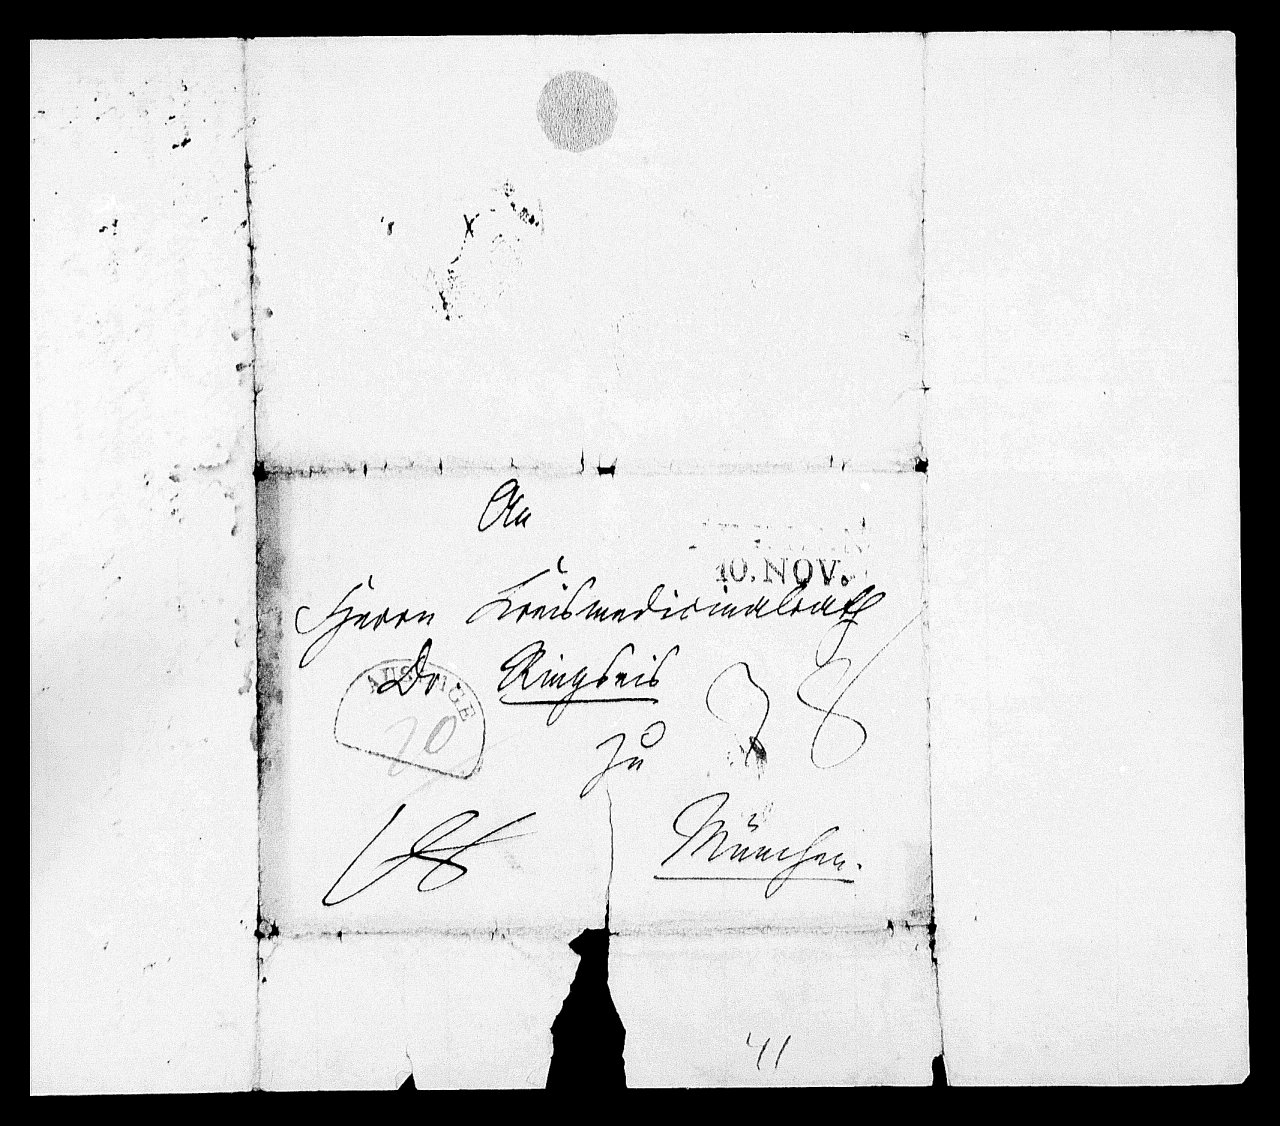 An
10. NOV.
Herrn Kreismedicinalrath
Dr Ringseis
zu
München.
20
41